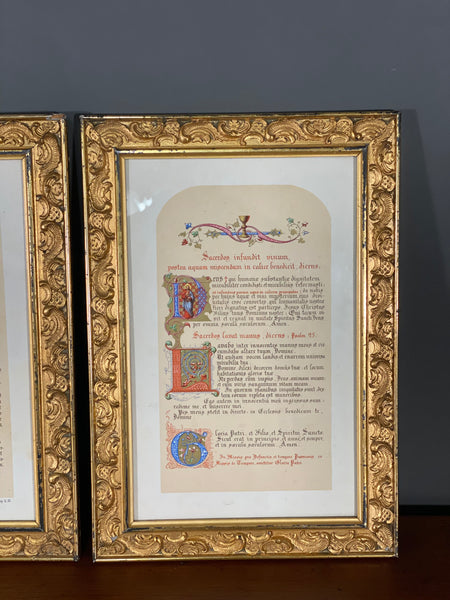 Sacerdos infundit vinum,
postea aquam miscendam in calice benedicit, dicens:
Deus † qui humanæ substantiæ dignitatem
mirabiliter condidisti et mirabilius reformasti:
da nobis
per hujus aquæ et vini mysterium, ejus divi-
nitatis esse consortes, qui humanitatis nostræ
fieri dignatus est particeps, Jesus Christus
Filius tuus Dominus noster; Qui tecum vi-
vit et regnat in unitate Spiritus Sancti Deus
per omnia sæcula sæculorum. Amen.
Sacerdos lavat manus, dicens: Psalm. 25.
Lavabo inter innocentes manus meas et cir-
cumdabo altare tuum, Domine
Ut audiam vocem laudis et enarrem universa
mirabilia tua.
Domine dilexi decorem domus tuæ et locum
habitationis gloriæ tuæ.
Ne perdas cum impiis, Deus, animam meam:
et cum viris sanguinum vitam meam.
In quorum manibus iniquitates sunt: dex-
tera eorum repleta est muneribus.
Ego autem in innocentia mea ingressus sum:
redime me, et miserere mei.
Pes meus stetit in directo in Ecclesiis benedicam te,
Domine
Gloria Patri, et Filio, et Spiritui Sancto.
Sicut erat in principio, et nunc, et semper,
et in sæcula sæculorum. Amen.
In Missis pro Defunctis et tempore Passionis in
Missis de Tempore, omittitur Gloria Patri.